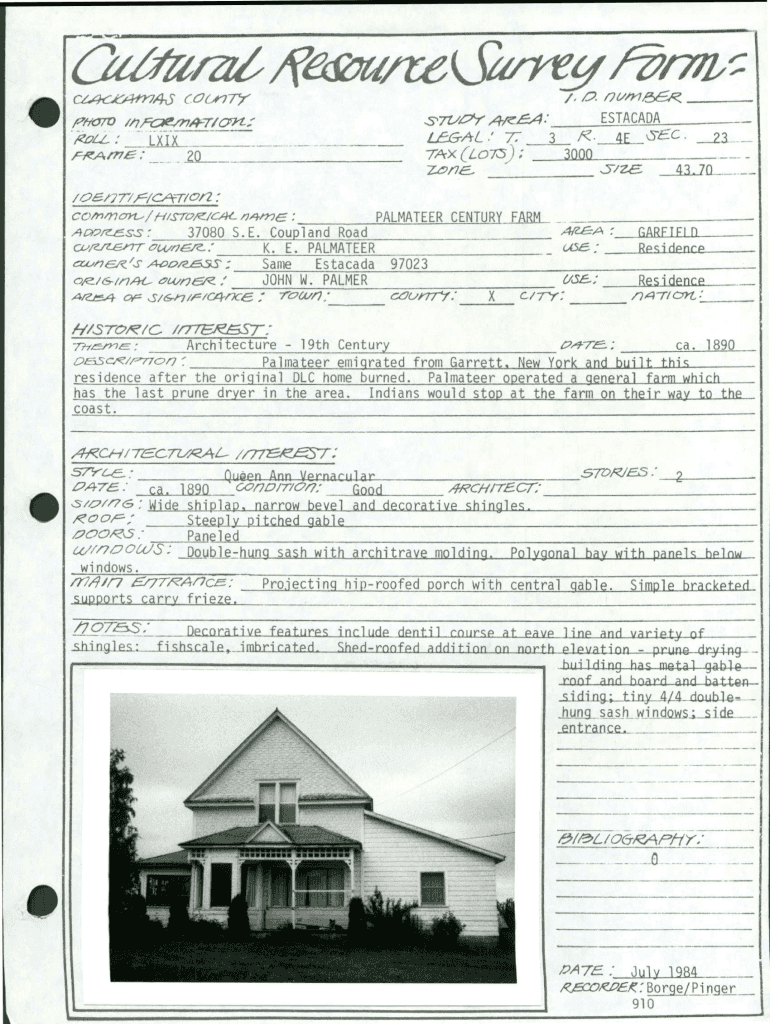 Cultural Resource Survey Form:
CLACKAMAS COUNTY I.D. NUMBER
PHOTO INFORMATION: STUDY AREA: ESTACADA
ROLL: LXIX LEGAL: T. 3 R. 4E SEC. 23
FRAME: 20 TAX (LOTS): 3000
ZONE SIZE 43.70
IDENTIFICATION:
COMMON/HISTORICAL NAME: PALMATEER CENTURY FARM
ADDRESS: 37080 S.E. Coupland Road AREA: GARFIELD
CURRENT OWNER: K. E. PALMATEER USE: Residence
OWNER'S ADDRESS: Same Estacada 97023
ORIGINAL OWNER: JOHN W. PALMER USE: Residence
AREA OF SIGNIFICANCE: TOWN: COUNTY: X CITY: NATION:
HISTORIC INTEREST:
THEME: Architecture - 19th Century DATE: ca. 1890
DESCRIPTION: Palmateer emigrated from Garrett, New York and built this
residence after the original DLC home burned. Palmateer operated a general farm which
has the last prune dryer in the area. Indians would stop at the farm on their way to the
coast.
ARCHITECTURAL INTEREST:
STYLE: Queen Ann Vernacular STORIES: 2
DATE: ca. 1890 CONDITION: Good ARCHITECT:
SIDING: Wide shiplap, narrow bevel and decorative shingles.
ROOF: Steeply pitched gable
DOORS: Paneled
WINDOWS: Double-hung sash with architrave molding. Polygonal bay with panels below
windows.
MAIN ENTRANCE: Projecting hip-roofed porch with central gable. Simple bracketed
supports carry frieze.
NOTES: Decorative features include dentil course at eave line and variety of
shingles: fishscale, imbricated. Shed-roofed addition on north elevation - prune drying
building has metal gable
roof and board and batten
siding; tiny 4/4 double-
hung sash windows; side
entrance.
BIBLIOGRAPHY:
0
DATE: July 1984
RECORDER: Borge/Pinger
910